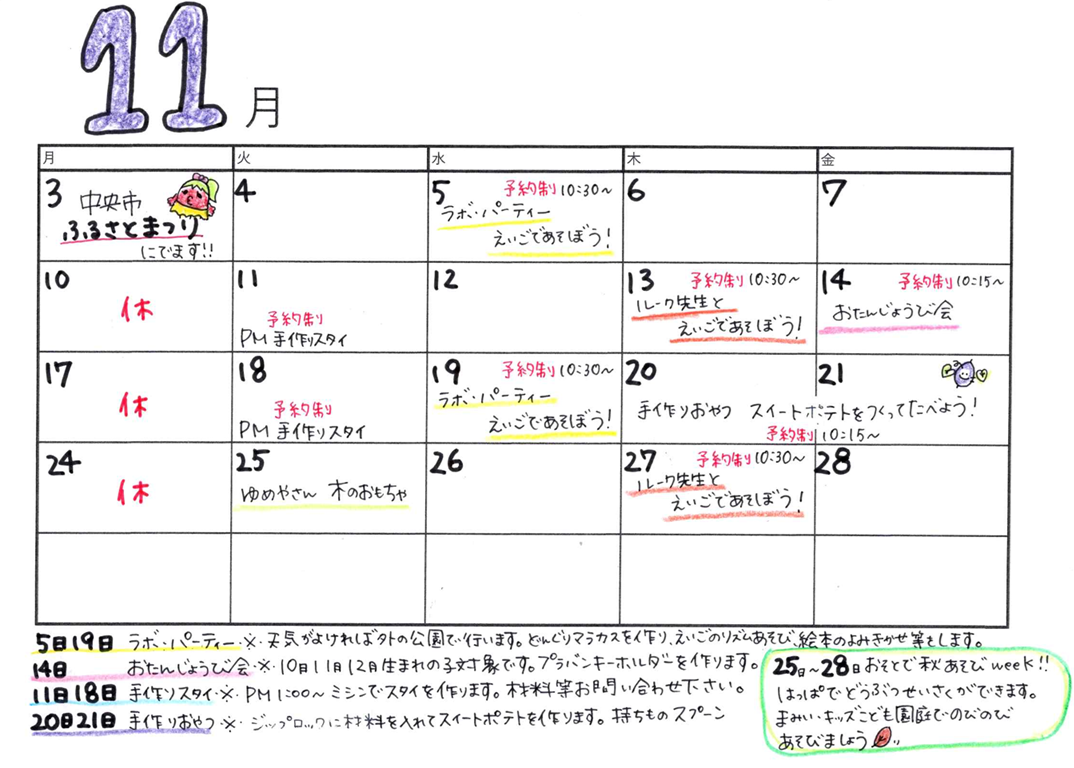 11月
月 火 水 木 金
3 中央市
ふるさとまつり
にでます!!
4
5 予約制 10:30~
ラボ・パーティー
えいごであそぼう!
6
7
10
休
11
予約制
PM 手作りスタイ
12
13 予約制 10:30~
ルーク先生と
えいごであそぼう!
14 予約制 10:15~
おたんじょうび会
17
休
18
予約制
PM 手作りスタイ
19 予約制 10:30~
ラボ・パーティー
えいごであそぼう!
20 21
手作りおやつ スイートポテトをつくってたべよう!
予約制 10:15~
24
休
25
ゆめやさん 木のおもちゃ
26
27 予約制 10:30~
ルーク先生と
えいごであそぼう!
28
5日19日 ラボ・パーティー・※・天気がよければ外の公園で行います。どんぐりマラカスを作り、えいごのリズムあそび、絵本のよみきかせ等をします。
14日 おたんじょうび会・※・10月11月12月生まれの子対象です。プラバンキーホルダーを作ります。
11日18日 手作りスタイ・※・PM1:00~ ミシンでスタイを作ります。材料等お問い合わせ下さい。
20日21日 手作りおやつ・※・ジップロックに材料を入れてスイートポテトを作ります。持ちもの スプーン
25日~28日おそとで秋あそびweek!!
はっぱでどうぶつせいさくができます。
まみい・キッズこども園庭でのびのび
あそびましょう